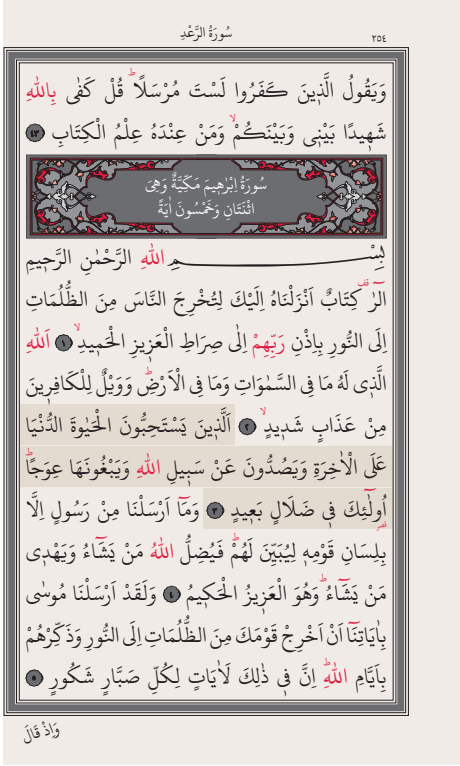 سُورَةُ الرَّعْدِ
٢٥٤
وَيَقُولُ الَّذ۪ينَ كَفَرُوا لَسْتَ مُرْسَلًاۜ قُلْ كَفٰى بِاللّٰهِ
شَه۪يدًا بَيْن۪ى وَبَيْنَكُمْۙ وَمَنْ عِنْدَهُ عِلْمُ الْكِتَابِ ﴿٤٣﴾
سُورَةُ اِبْرٰه۪يمَ مَكِّيَّةٌ وَهِىَ
اثْنَتَانِ وَخَمْسُونَ اٰيَةً
بِسْمِ اللّٰهِ الرَّحْمٰنِ الرَّح۪يمِ
الٓرٰ۠ كِتَابٌ اَنْزَلْنَاهُ اِلَيْكَ لِتُخْرِجَ النَّاسَ مِنَ الظُّلُمَاتِ
اِلَى النُّورِ بِاِذْنِ رَبِّهِمْ اِلٰى صِرَاطِ الْعَز۪يزِ الْحَم۪يدِۙ ﴿١﴾ اَللّٰهِ
الَّذ۪ى لَهُ مَا فِى السَّمٰوَاتِ وَمَا فِى الْاَرْضِۜ وَوَيْلٌ لِلْكَافِر۪ينَ
مِنْ عَذَابٍ شَد۪يدٍۙ ﴿٢﴾ اَلَّذ۪ينَ يَسْتَحِبُّونَ الْحَيٰوةَ الدُّنْيَا
عَلَى الْاٰخِرَةِ وَيَصُدُّونَ عَنْ سَب۪يلِ اللّٰهِ وَيَبْغُونَهَا عِوَجًاۜ
اُو۬لٰٓئِكَ ف۪ى ضَلَالٍ بَع۪يدٍ ﴿٣﴾ وَمَٓا اَرْسَلْنَا مِنْ رَسُولٍ اِلَّا
بِلِسَانِ قَوْمِه۪ لِيُبَيِّنَ لَهُمْۜ فَيُضِلُّ اللّٰهُ مَنْ يَشَٓاءُ وَيَهْد۪ى
مَنْ يَشَٓاءُۜ وَهُوَ الْعَز۪يزُ الْحَك۪يمُ ﴿٤﴾ وَلَقَدْ اَرْسَلْنَا مُوسٰى
بِاٰيَاتِنَٓا اَنْ اَخْرِجْ قَوْمَكَ مِنَ الظُّلُمَاتِ اِلَى النُّورِ وَذَكِّرْهُمْ
بِاَيَّامِ اللّٰهِۜ اِنَّ ف۪ى ذٰلِكَ لَاٰيَاتٍ لِكُلِّ صَبَّارٍ شَكُورٍ ﴿٥﴾
وَاِذْ قَالَ